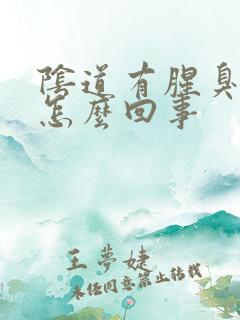 陰道有腥臭
怎麼回事
王夢婕
未经同意禁止转载